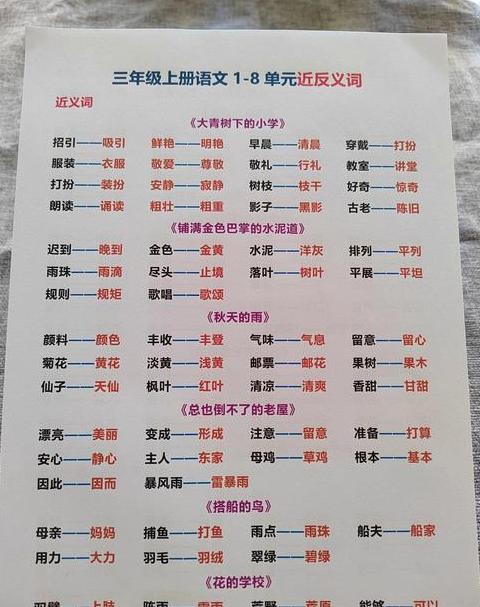 三年级上册语文1-8单元近反义词
近义词
《大青树下的小学》
招引——吸引 鲜艳——明艳 早晨——清晨 穿戴——打扮
服装——衣服 敬爱——尊敬 敬礼——行礼 教室——讲堂
打扮——装扮 安静——寂静 树枝——枝干 好奇——惊奇
朗读——诵读 粗壮——粗重 影子——黑影 古老——陈旧
《铺满金色巴掌的水泥道》
迟到——晚到 金色——金黄 水泥——洋灰 排列——平列
雨珠——雨滴 尽头——止境 落叶——树叶 平展——平坦
规则——规矩 歌唱——歌颂
《秋天的雨》
颜料——颜色 丰收——丰登 气味——气息 留意——留心
菊花——黄花 淡黄——浅黄 邮票——邮花 果树——果木
仙子——天仙 枫叶——红叶 清凉——清爽 香甜——甘甜
《总也倒不了的老屋》
漂亮——美丽 变成——形成 注意——留意 准备——打算
安心——静心 主人——东家 母鸡——草鸡 根本——基本
因此——因而 暴风雨——雷暴雨
《搭船的鸟》
母亲——妈妈 捕鱼——打鱼 雨点——雨珠 船夫——船家
用力——大力 羽毛——羽绒 翠绿——碧绿
《花的学校》